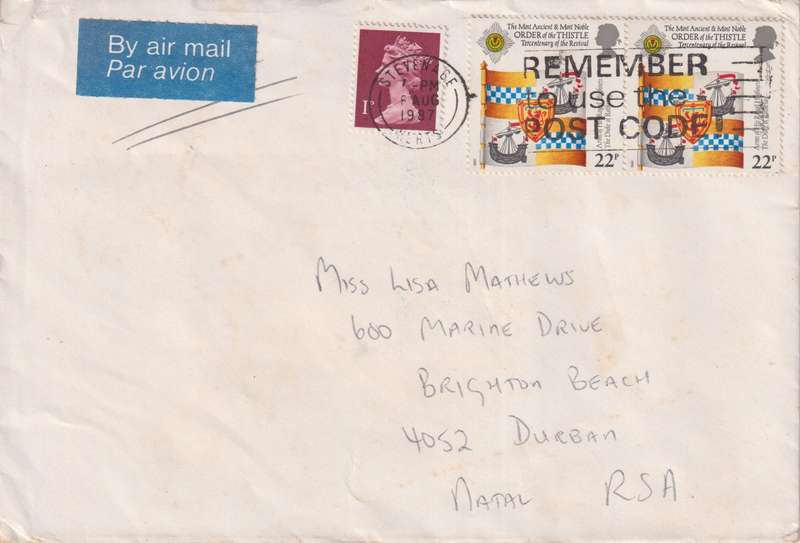 By air mail
Par avion
1P
STEVENAGE
-PM
6 AUG
1987
HERTS
The Most Ancient & Most Noble
ORDER of the THISTLE
Tercentenary of the Revival
22P
The Most Ancient & Most Noble
ORDER of the THISTLE
Tercentenary of the Revival
22P
REMEMBER
to use the
POST CODE
MISS LISA MATHEWS
600 MARINE DRIVE
BRIGHTON BEACH
4052 DURBAN
NATAL RSA.